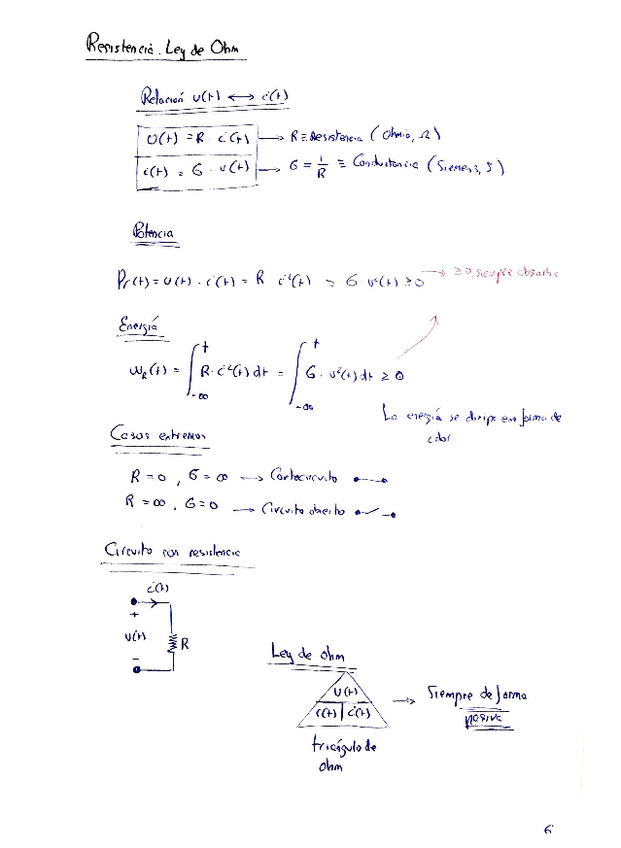 Resistencia. Ley de Ohm
Relación u(t) ↔ i(t)
U(t) = R · i(t) → R ≡ Resistencia (Ohmio, Ω)
i(t) = G · u(t) → G = 1/R ≡ Conductancia (Siemens, S)
Potencia
Pr(t) = u(t) · i(t) = R i²(t) = G · u²(t) ≥ 0 → ≥ 0, siempre absorbe
Energía
WR(t) = ∫ t -∞ R · i²(t) dt = ∫ t -∞ G · u²(t) dt ≥ 0
La energía se disipa en forma de
calor
Casos extremos
R = 0 , G = ∞ → Cortocircuito
R = ∞ , G = 0 → Circuito abierto
Circuito con resistencia
i(t)
+
u(t) R
-
Ley de ohm
U(t)
r(t) i(t) → Siempre de forma
pasiva
triángulo de
ohm
6